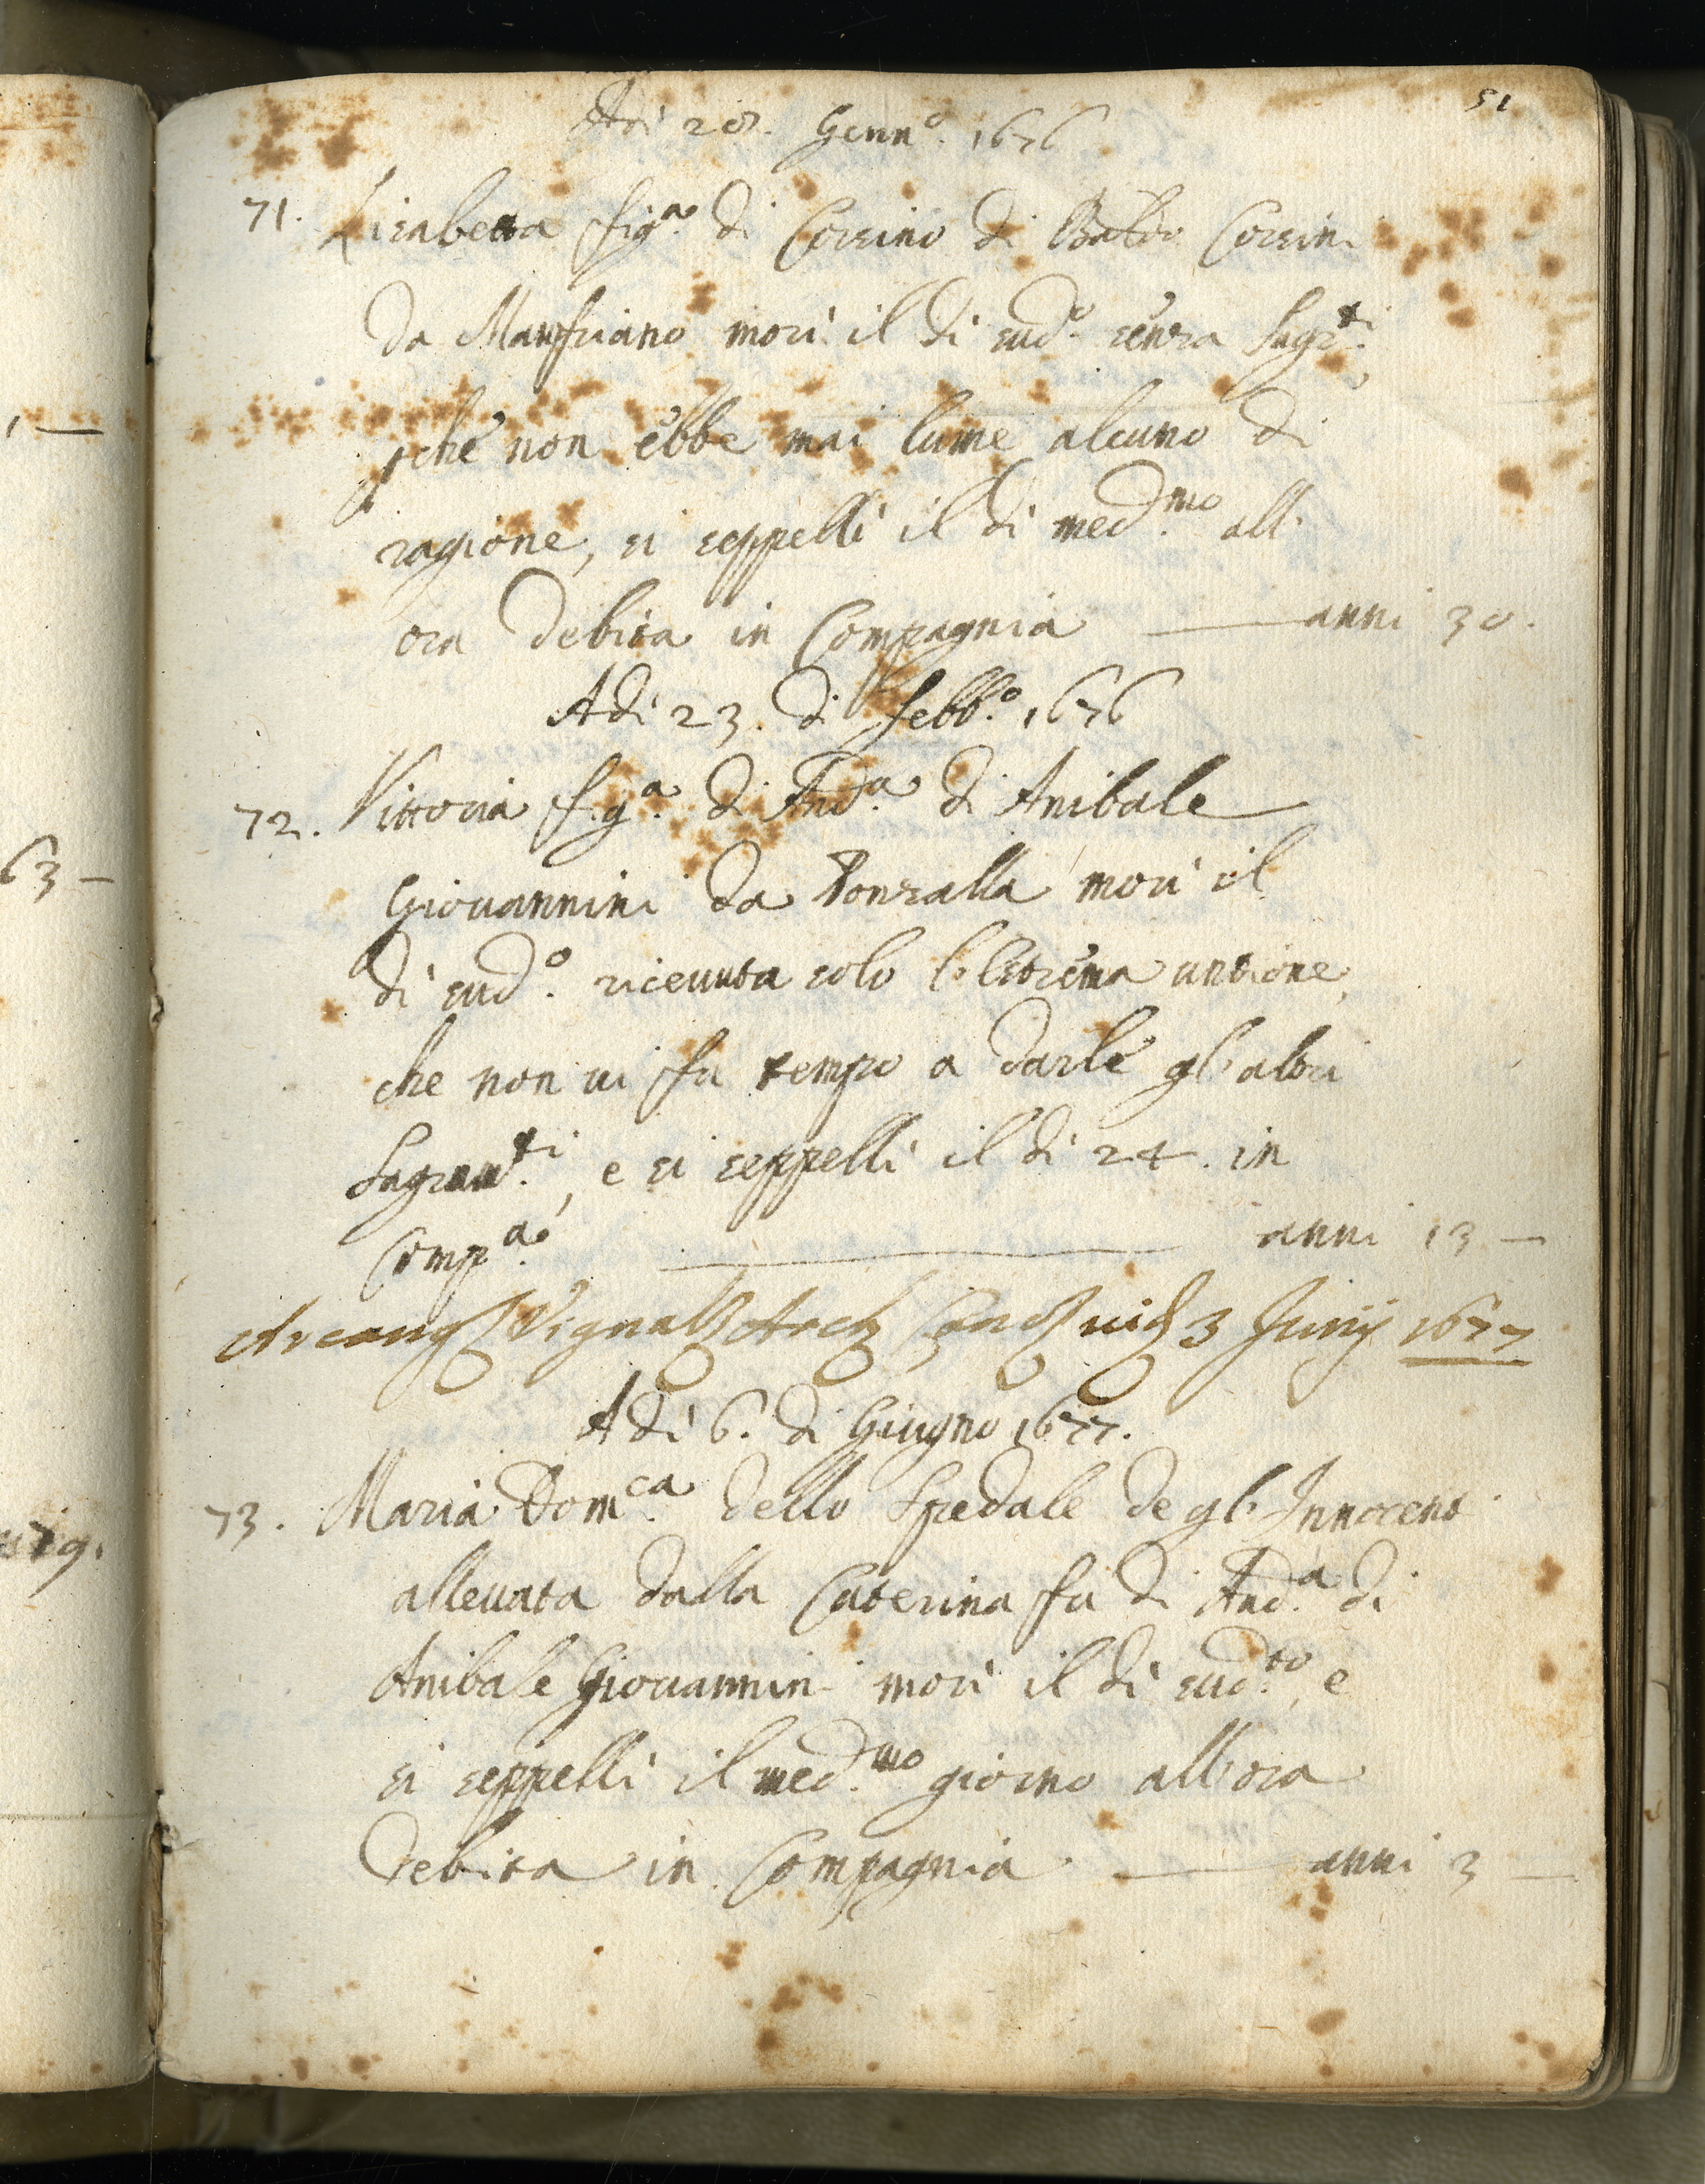 51
Adi 28. Genn.o 1676
71. Lisabetta fig.a di Corsino di Corsini
da Manfriano morì il dì sud.o senza Sagr.ti
pchè non ebbe mai lume alcuno di
ragione, si seppellì il dì med.mo all'
ora debita in Compagnia — anni 30.
Adi 23. di Febb.o 1676
72. Vittoria fig.a di And.a di Anibale
Giovannini da Ronzalla morì il
dì sud.o ricevuta solo l'Estrema untione,
che non vi fu tempo a darle gl'altri
Sagram.ti, e si seppellì il dì 24. in
Comp.a — anni 13 —
Arcang Vignal Arch 3 Junij 1677
Adì 6. di Giugno 1677.
73. Maria Dom.ca dello Spedale de gl'Innocent
allevata dalla Caterina fu di And.a di
Anibale Giovannini morì il dì sud.to, e
si seppellì il med.mo giorno all'ora
debita in Compagnia — anni 3 —
1 —
63 —
19.